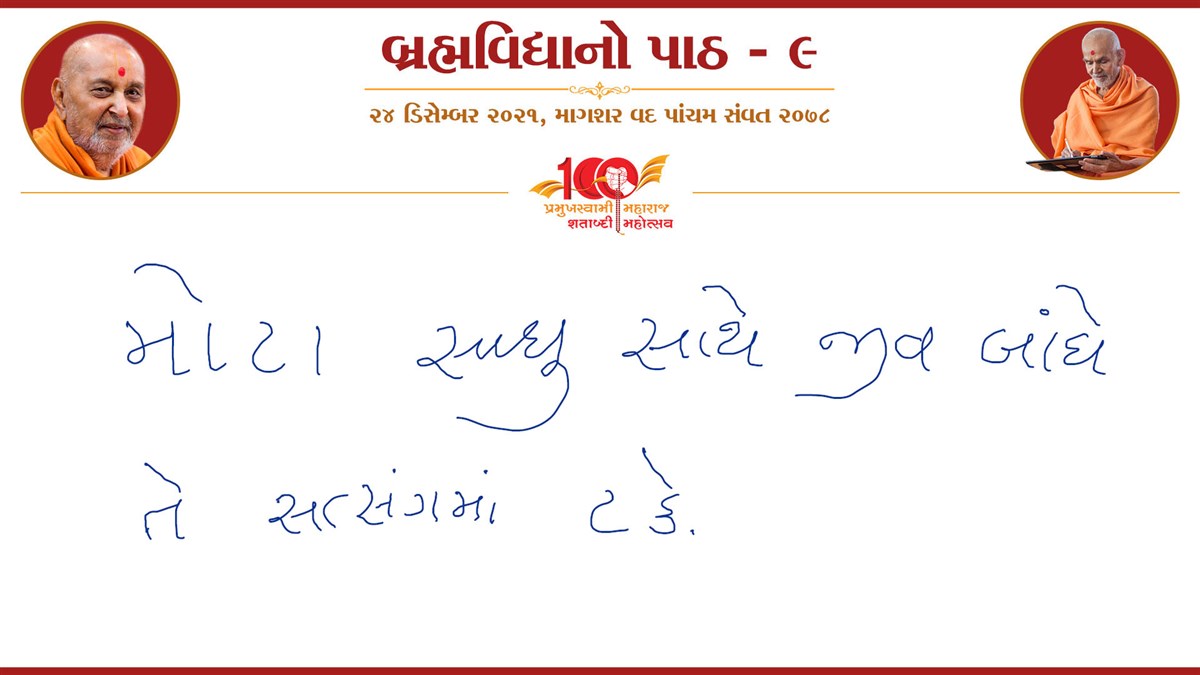 બ્રહ્મવિદ્યાનો પાઠ - ૯
૨૪ ડિસેમ્બર ૨૦૨૧, માગશર વદ પાંચમ સંવત ૨૦૭૮
100
પ્રમુખસ્વામી મહારાજ
શતાબ્દી મહોત્સવ
મોટા સાધુ સાથે જીવ બાંધે
તે સત્સંગમાં ટકે.